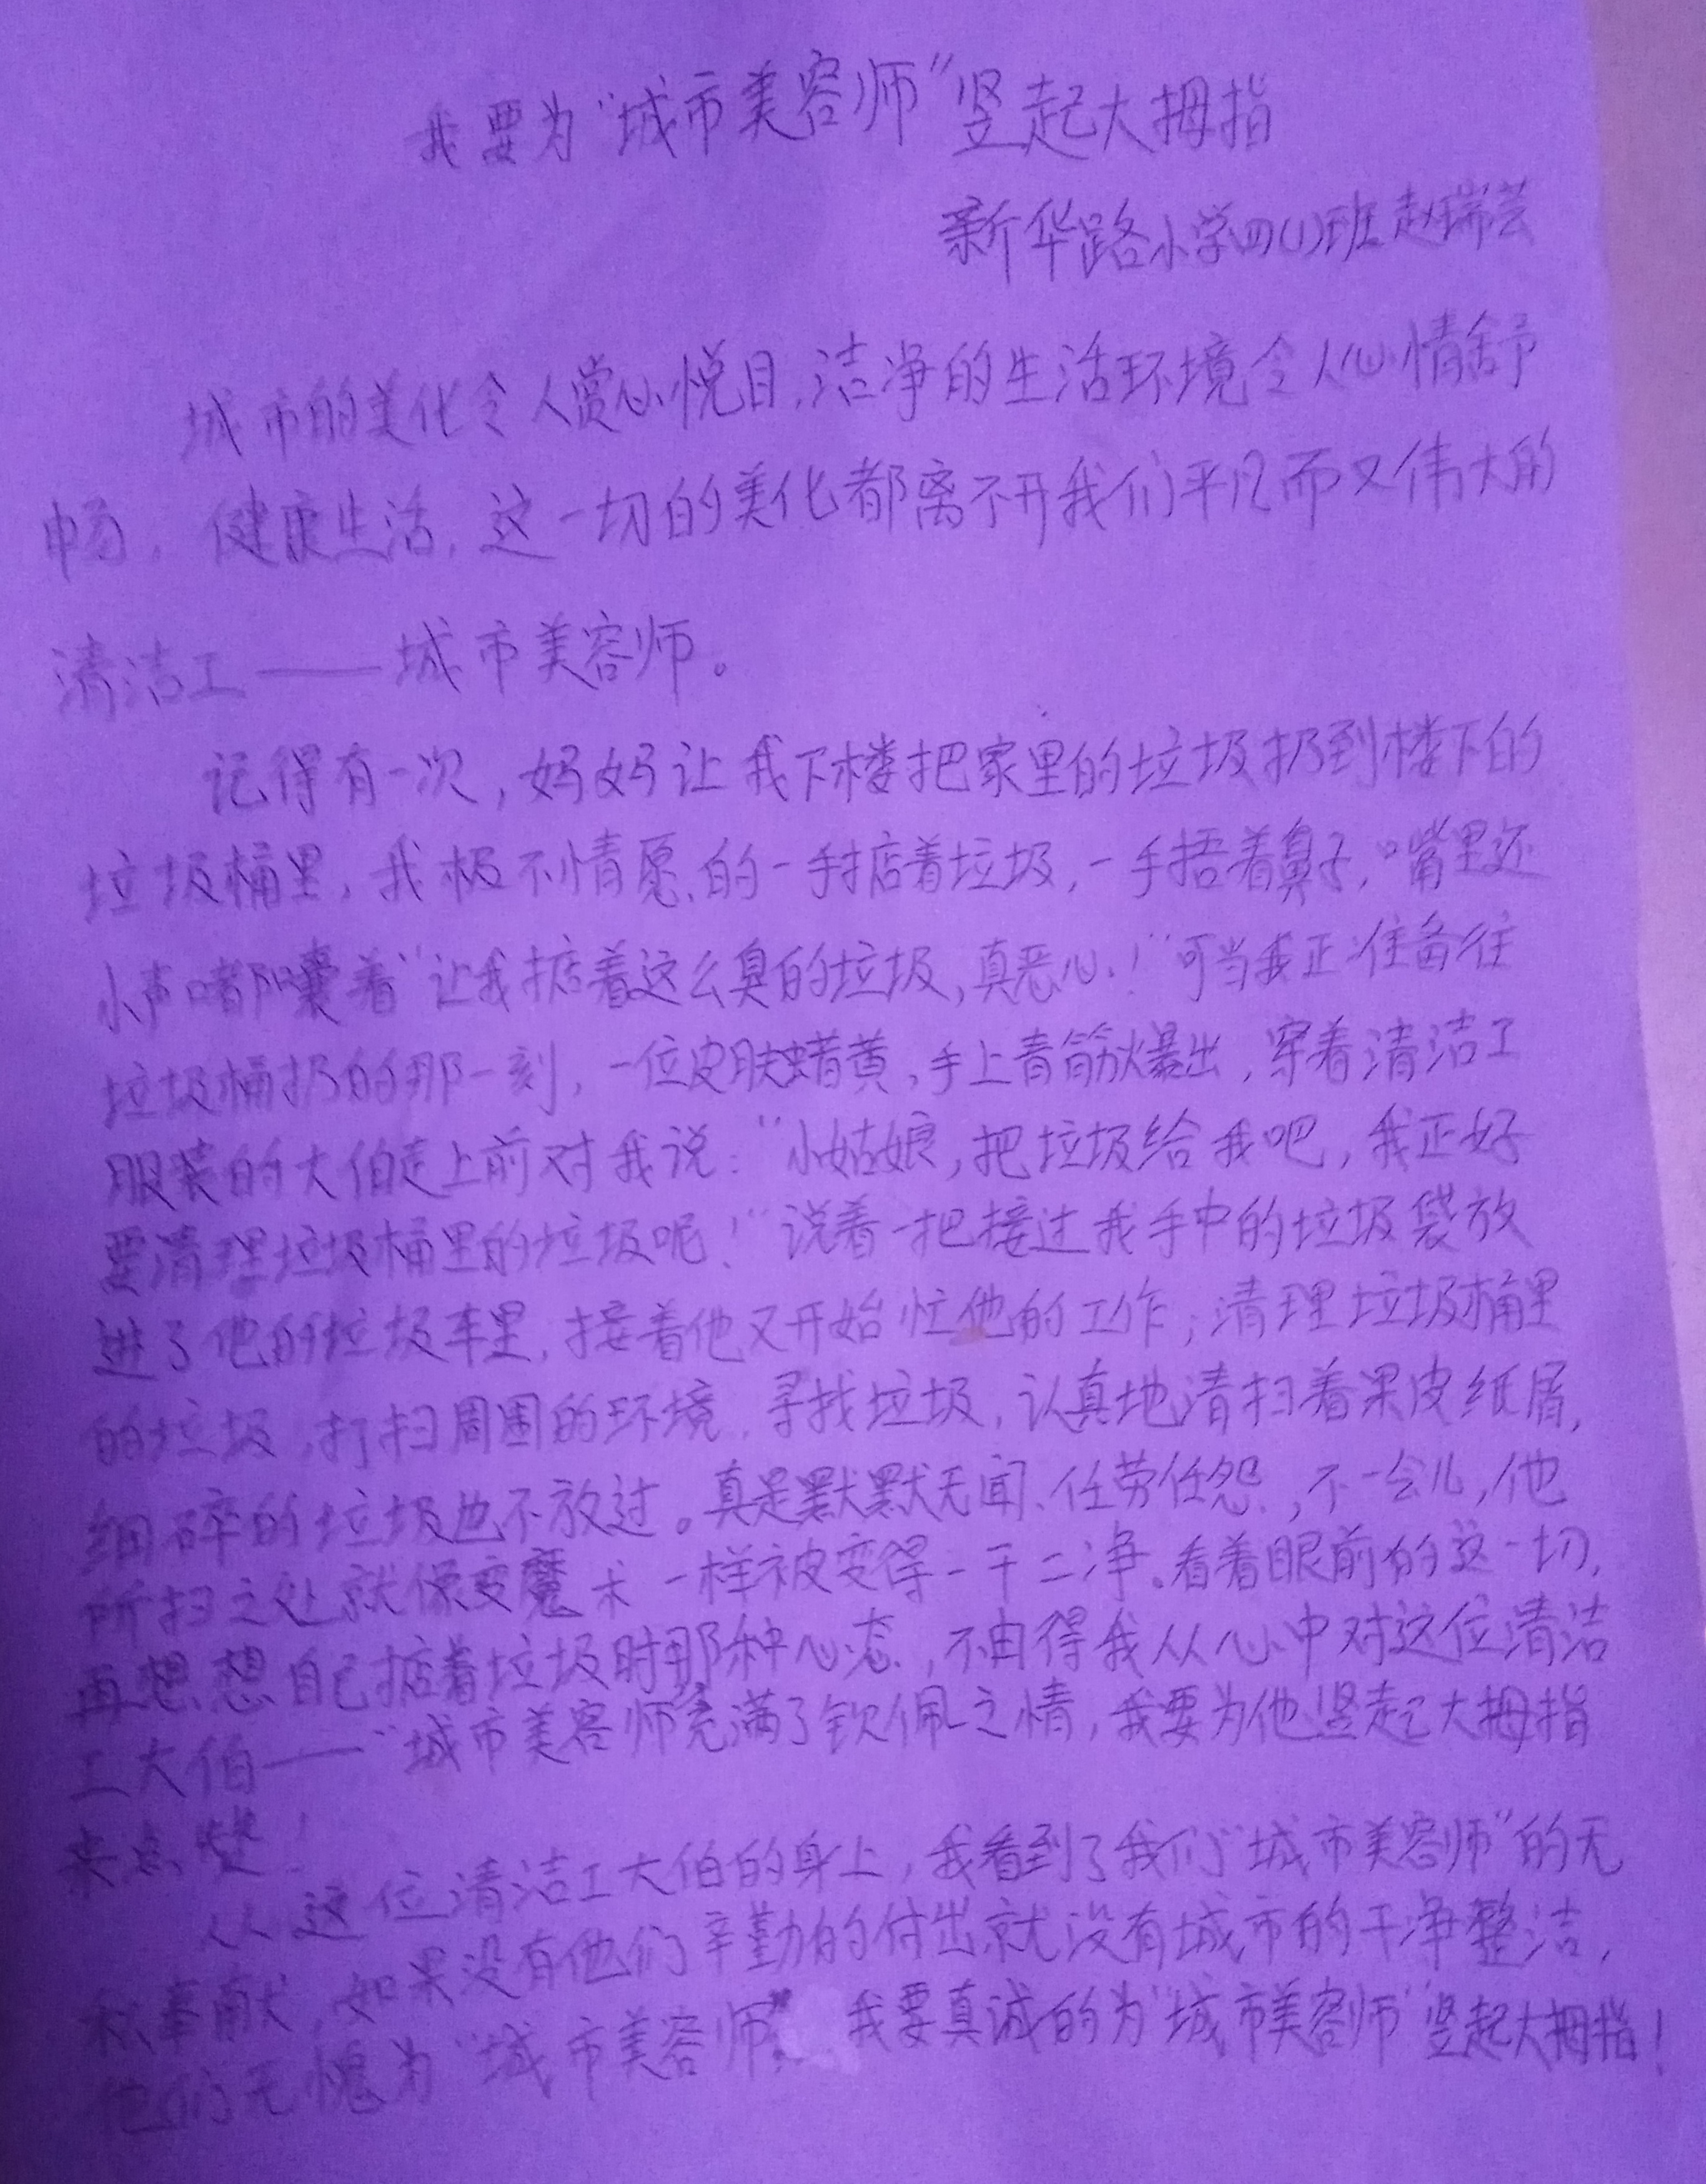 我要为“城市美容师”竖起大拇指
新华路小学四(1)班赵瑞芸
城市的美化令人赏心悦目,洁净的生活环境令人心情舒
畅,健康生活,这一切的美化都离不开我们平凡而又伟大的
清洁工——城市美容师。
记得有一次,妈妈让我下楼把家里的垃圾扔到楼下的
垃圾桶里,我极不情愿的一手掂着垃圾,一手捂着鼻子,嘴里还
小声嘟囔着“让我掂着这么臭的垃圾,真恶心!”可当我正准备往
垃圾桶扔的那一刻,一位皮肤蜡黄,手上青筋爆出,穿着清洁工
服装的大伯走上前对我说:“小姑娘,把垃圾给我吧,我正好
要清理垃圾桶里的垃圾呢!”说着一把接过我手中的垃圾袋放
进了他的垃圾车里,接着他又开始忙他的工作;清理垃圾桶里
的垃圾,打扫周围的环境,寻找垃圾,认真地清扫着果皮纸屑,
细碎的垃圾也不放过。真是默默无闻、任劳任怨,不一会儿,他
所扫之处就像变魔术一样被变得一干二净。看着眼前的这一切,
再想想自己掂着垃圾时那种心态,不由得我从心中对这位清洁
工大伯——“城市美容师”充满了钦佩之情,我要为他竖起大拇指
来点赞!
从这位清洁工大伯的身上,我看到了我们“城市美容师”的无
私奉献,如果没有他们辛勤的付出就没有城市的干净整洁,
他们无愧为“城市美容师”。我要真诚的为“城市美容师”竖起大拇指!